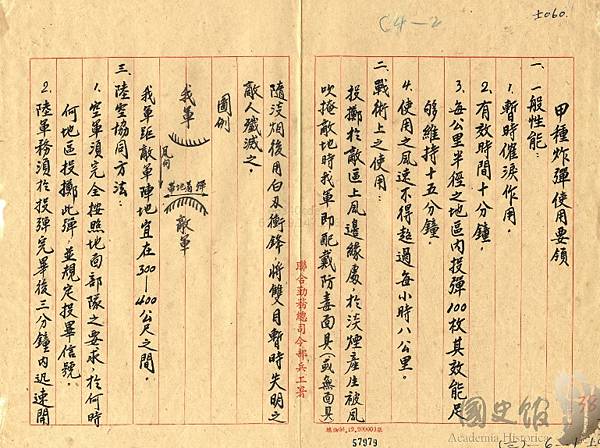 C4-2
±060.
甲種炸彈使用要領
一、一般性能：
1. 暫時催淚作用。
2. 有效時間十分鐘。
3. 每公里半徑之地區內投彈100枚其效能足
夠維持十五分鐘。
4. 使用之風速不得超過每小時八公里。
二、戰術上之使用：
投擲於敵區上風邊緣處，於淡煙產生被風
吹掩敵地時我軍即配戴防毒面具（或無面具
聯合勤務總司令部兵工署
隨淡烟後用白刃衝鋒，將雙目暫時失明之
敵人殲滅之。
圖例
我軍
風向
彈着地帶
敵軍
我軍距敵軍陣地宜在300—400公尺之間。
三、陸空協同方法：
1. 空軍須完全按照地面部隊之要求，於何時
何地區投擲此彈，並規定投畢信號。
2. 陸軍務須於投彈完畢後三分鐘內迅速開
57979
國史館
Academia Historica